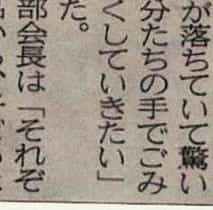 が落ちていて驚い
分たちの手でごみ
くしていきたい」
た。
部会長は「それぞ